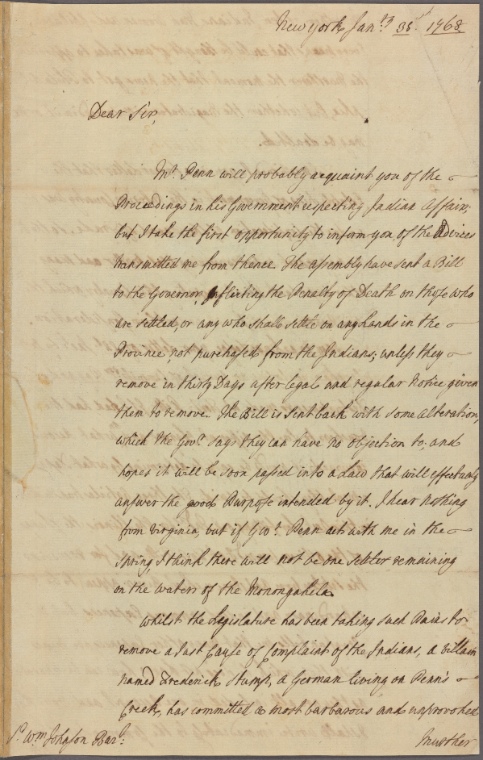 New York Janry 31st 1768
Dear Sir,
Mr. Penn will probably acquaint you of the
Proceedings in his Government respecting Indian Affairs,
but I take the first opportunity to inform you of the Advices
transmitted me from thence. The assembly have sent a Bill
to the Governor inflicting the Penalty of Death on those who
are settled, or any who shall settle on any lands in the
Province not purchased from the Indians, unless they
remove in thirty Days after legal and regular Notice given
them to remove. The Bill is sent back with some alteration,
which the Govr. says they can have no objection to, and
hopes it will be soon passed into a Law that will effectualy
answer the good Purpose intended by it. I hear nothing
from Virginia, but if Govr. Penn acts with me in the
Spring I think there will not be one settler remaining
on the waters of the Monongahela.
Whilst the Legislature has been taking such Pains to
remove a just Cause of Complaint of the Indians, a villain
named Frederick Stump, a German living on Penn's
Creek, has committed a most barbarous and unprovoked
Sr. Wm. Johnson Bart.
murther